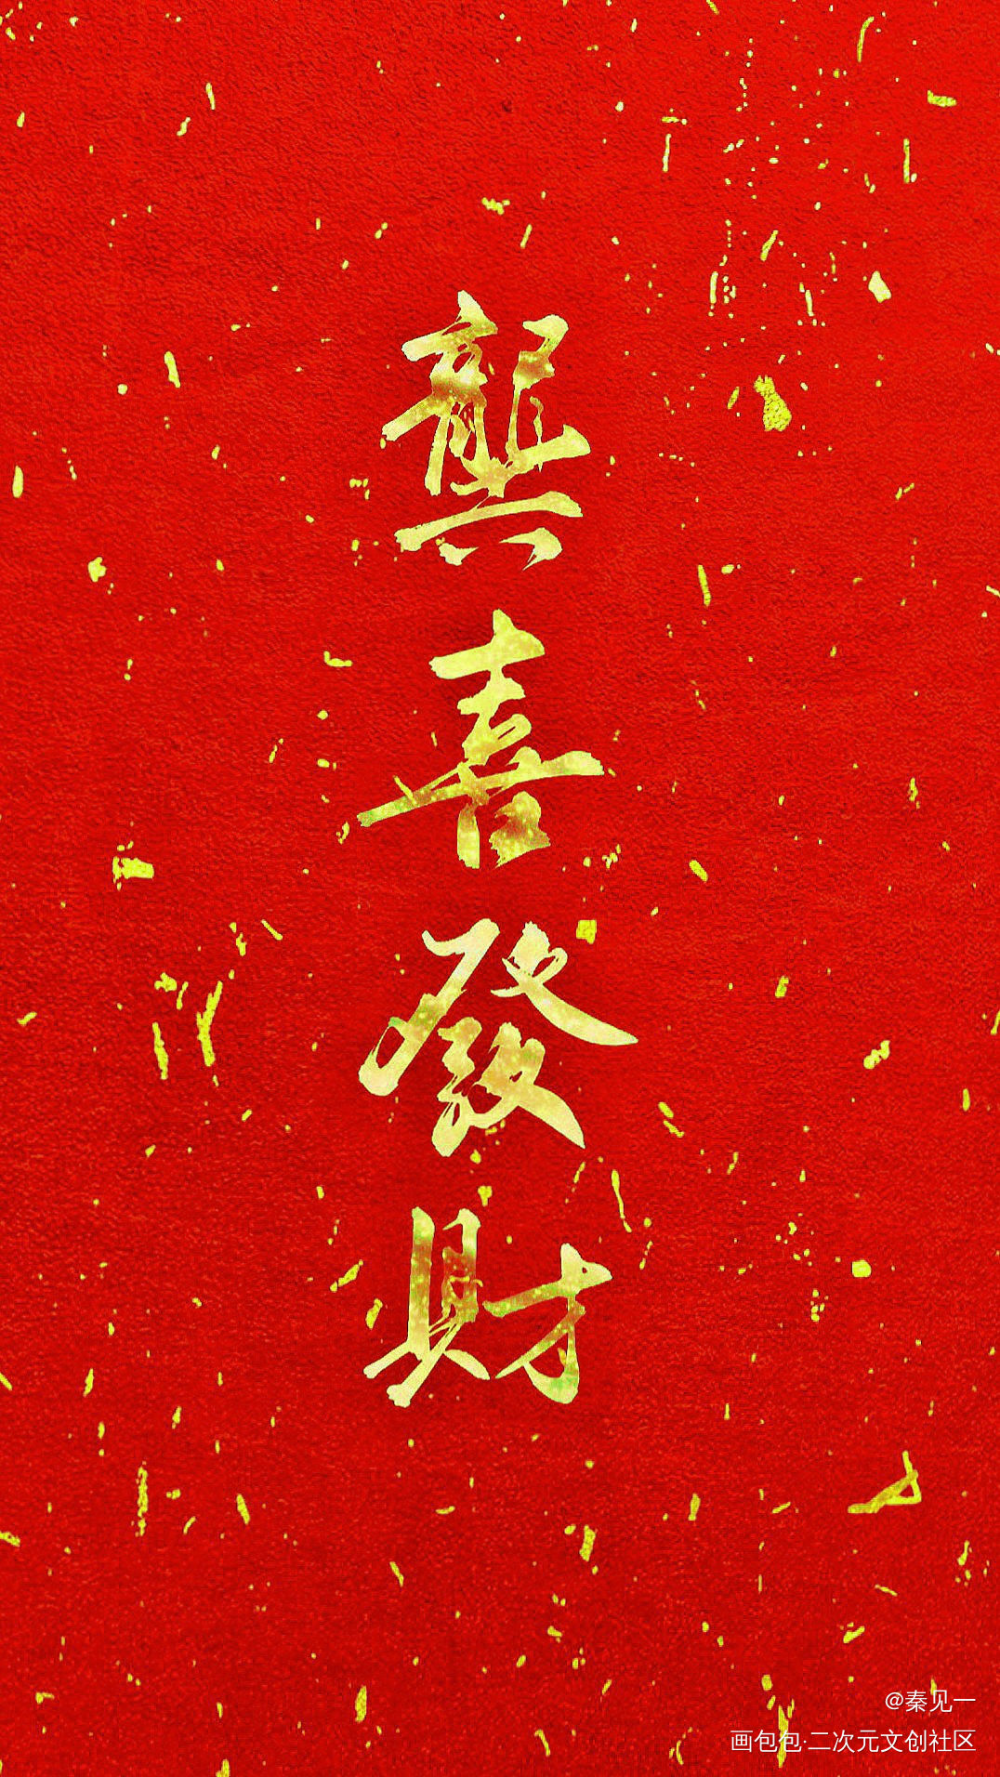 龔喜發財
@秦见一
画包包·二次元文创社区